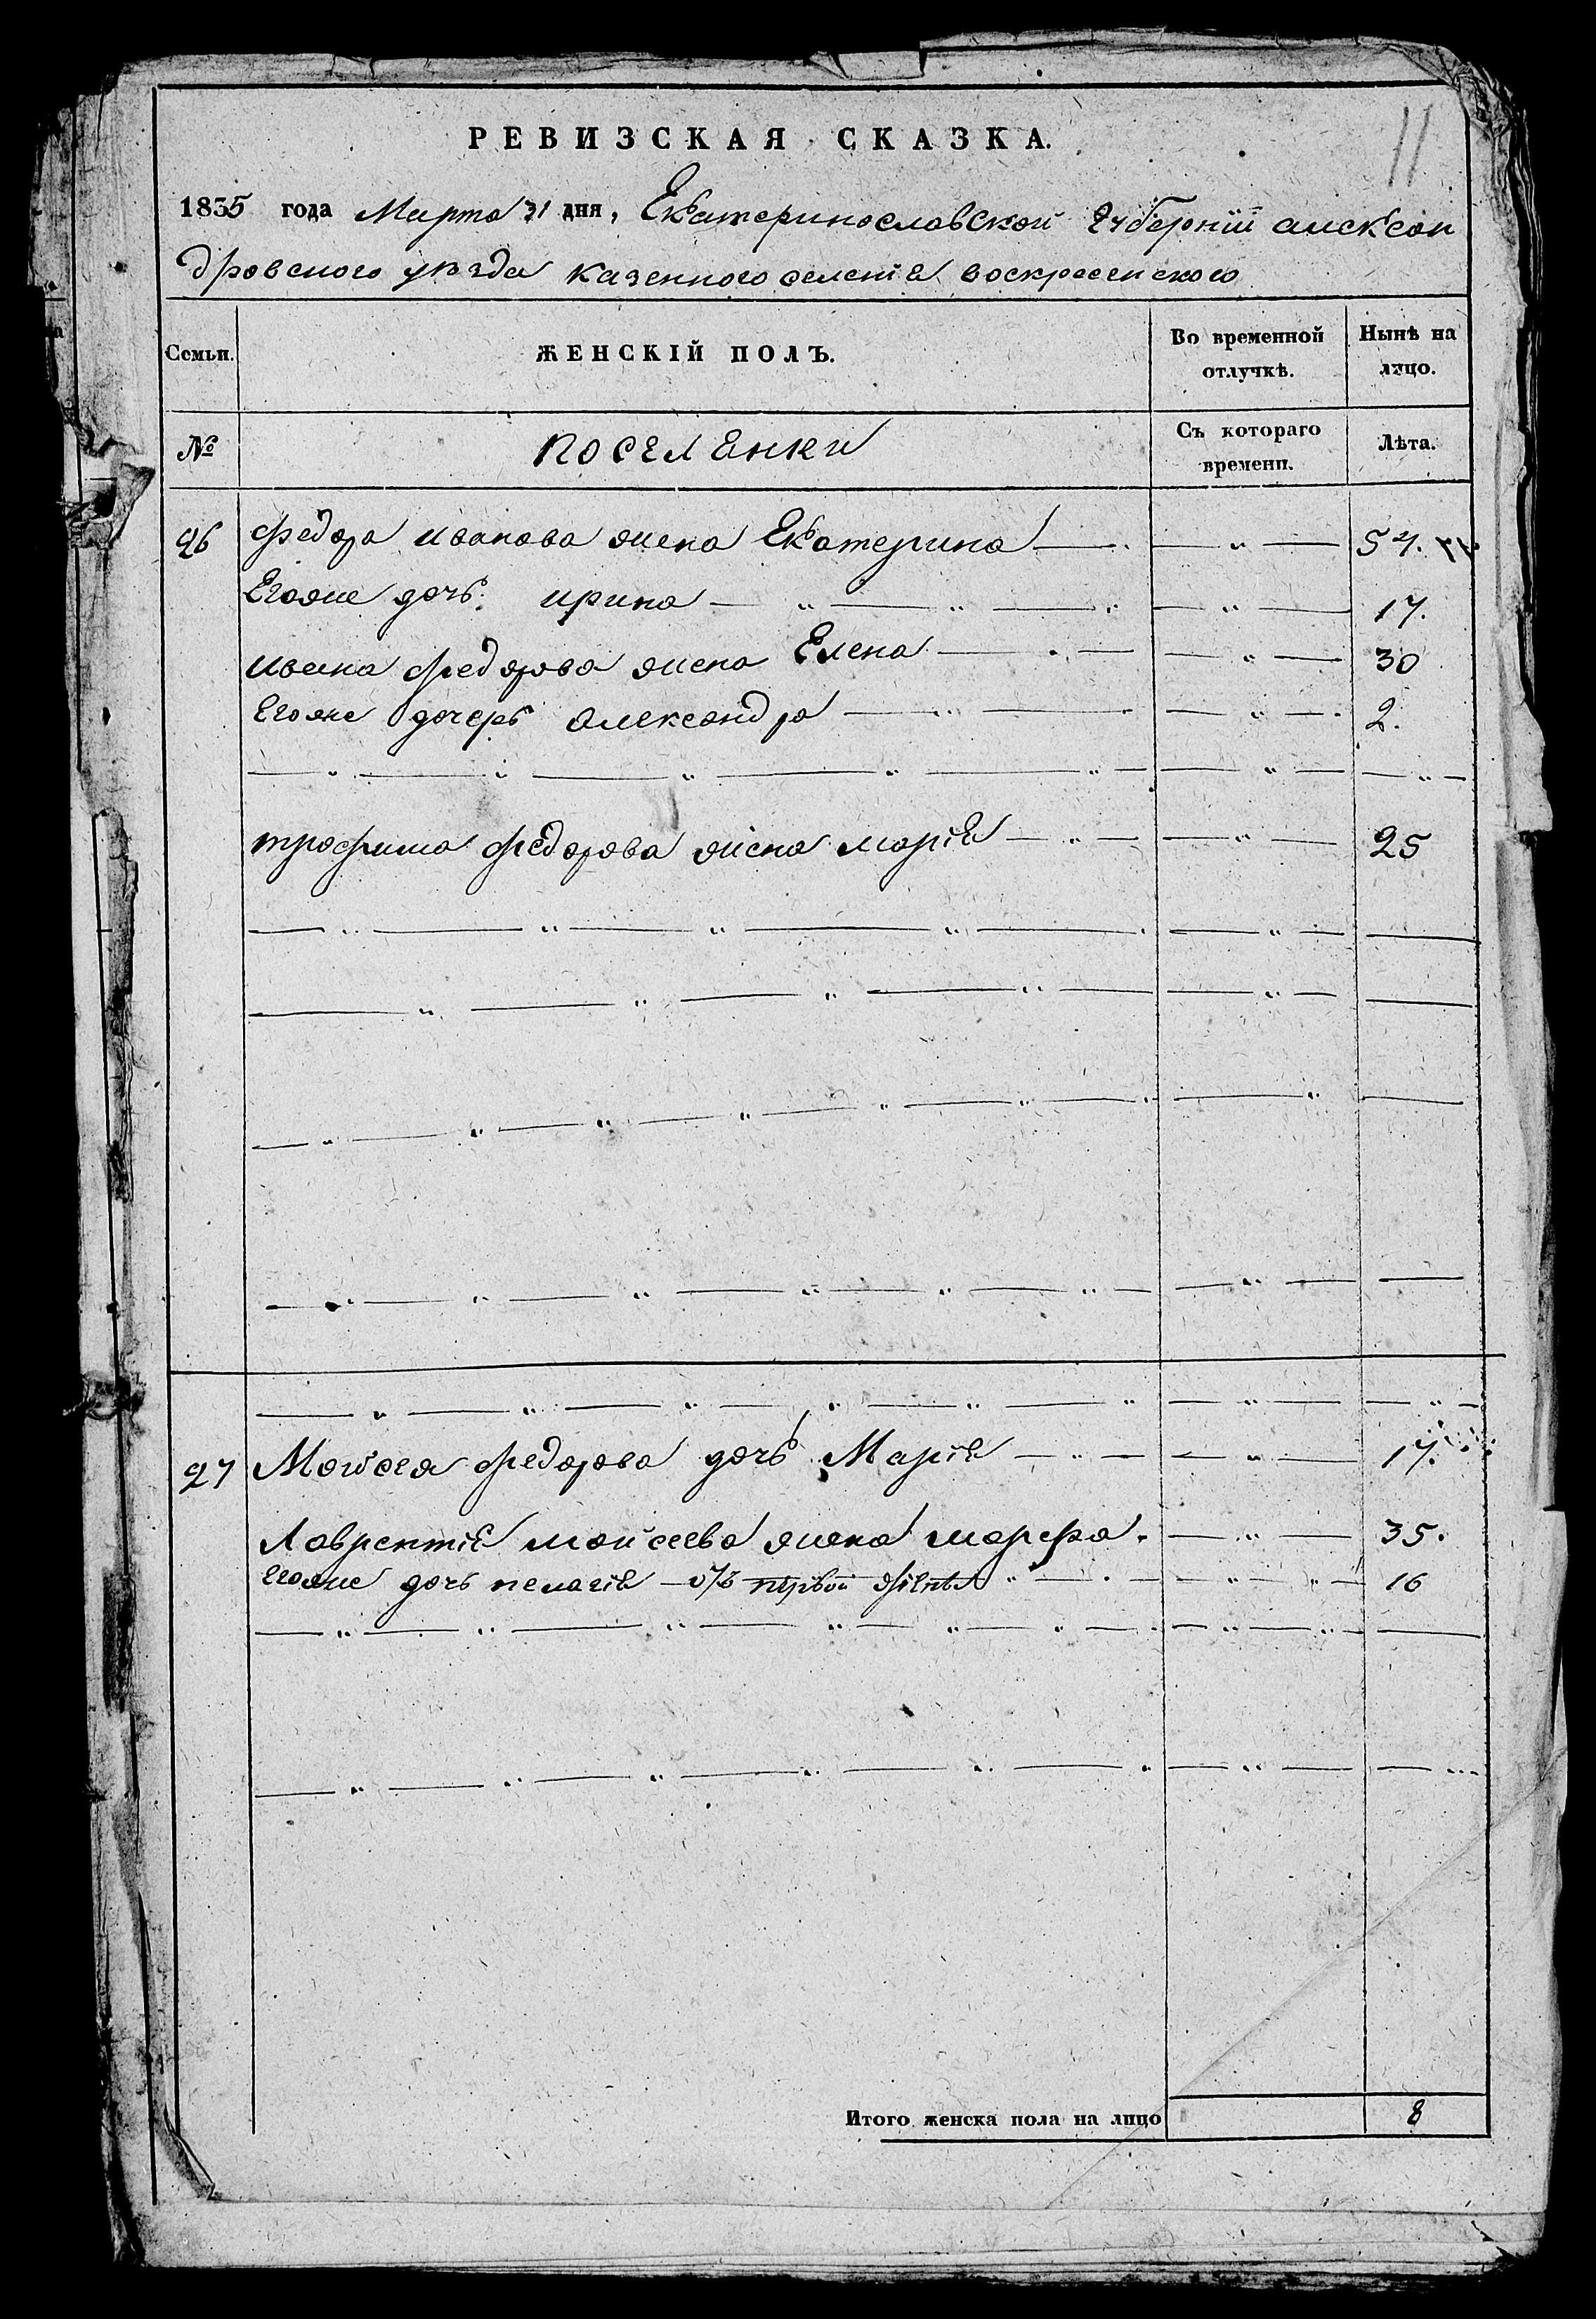 11
РЕВИЗСКАЯ СКАЗКА.
1835 года Марта 31 дня, Екатеринославской губернїй алексан
дровского уезда казенного селенїя воскресенского
Семьи. ЖЕНСКІЙ ПОЛЪ. Во временной отлучкѣ. Нынѣ на лицо.
№ поселянки Съ котораго времени. Лѣта.
26 федора иванова жена Екатерина — „ — 57.
Егоже дочь ирина — „ — „ — „ — „ — 17.
ивана федорова жена Елена — „ — „ — 30
Егоже дочерь александра — „ — „ — 2.
трофима федорова жена марія — „ — „ — 25
27 Моисея федорова дочь Марія — „ — „ — 17.
Лаврентія моисеева жена марфа. — „ — 35.
Егоже дочь пелагія — отъ первой жены „ — „ — 16
Итого женска пола на лицо 8